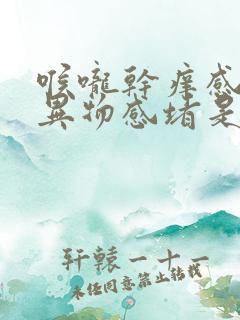 喉嚨幹癢感
異物感堵是
轩辕一十一
未经同意禁止转载